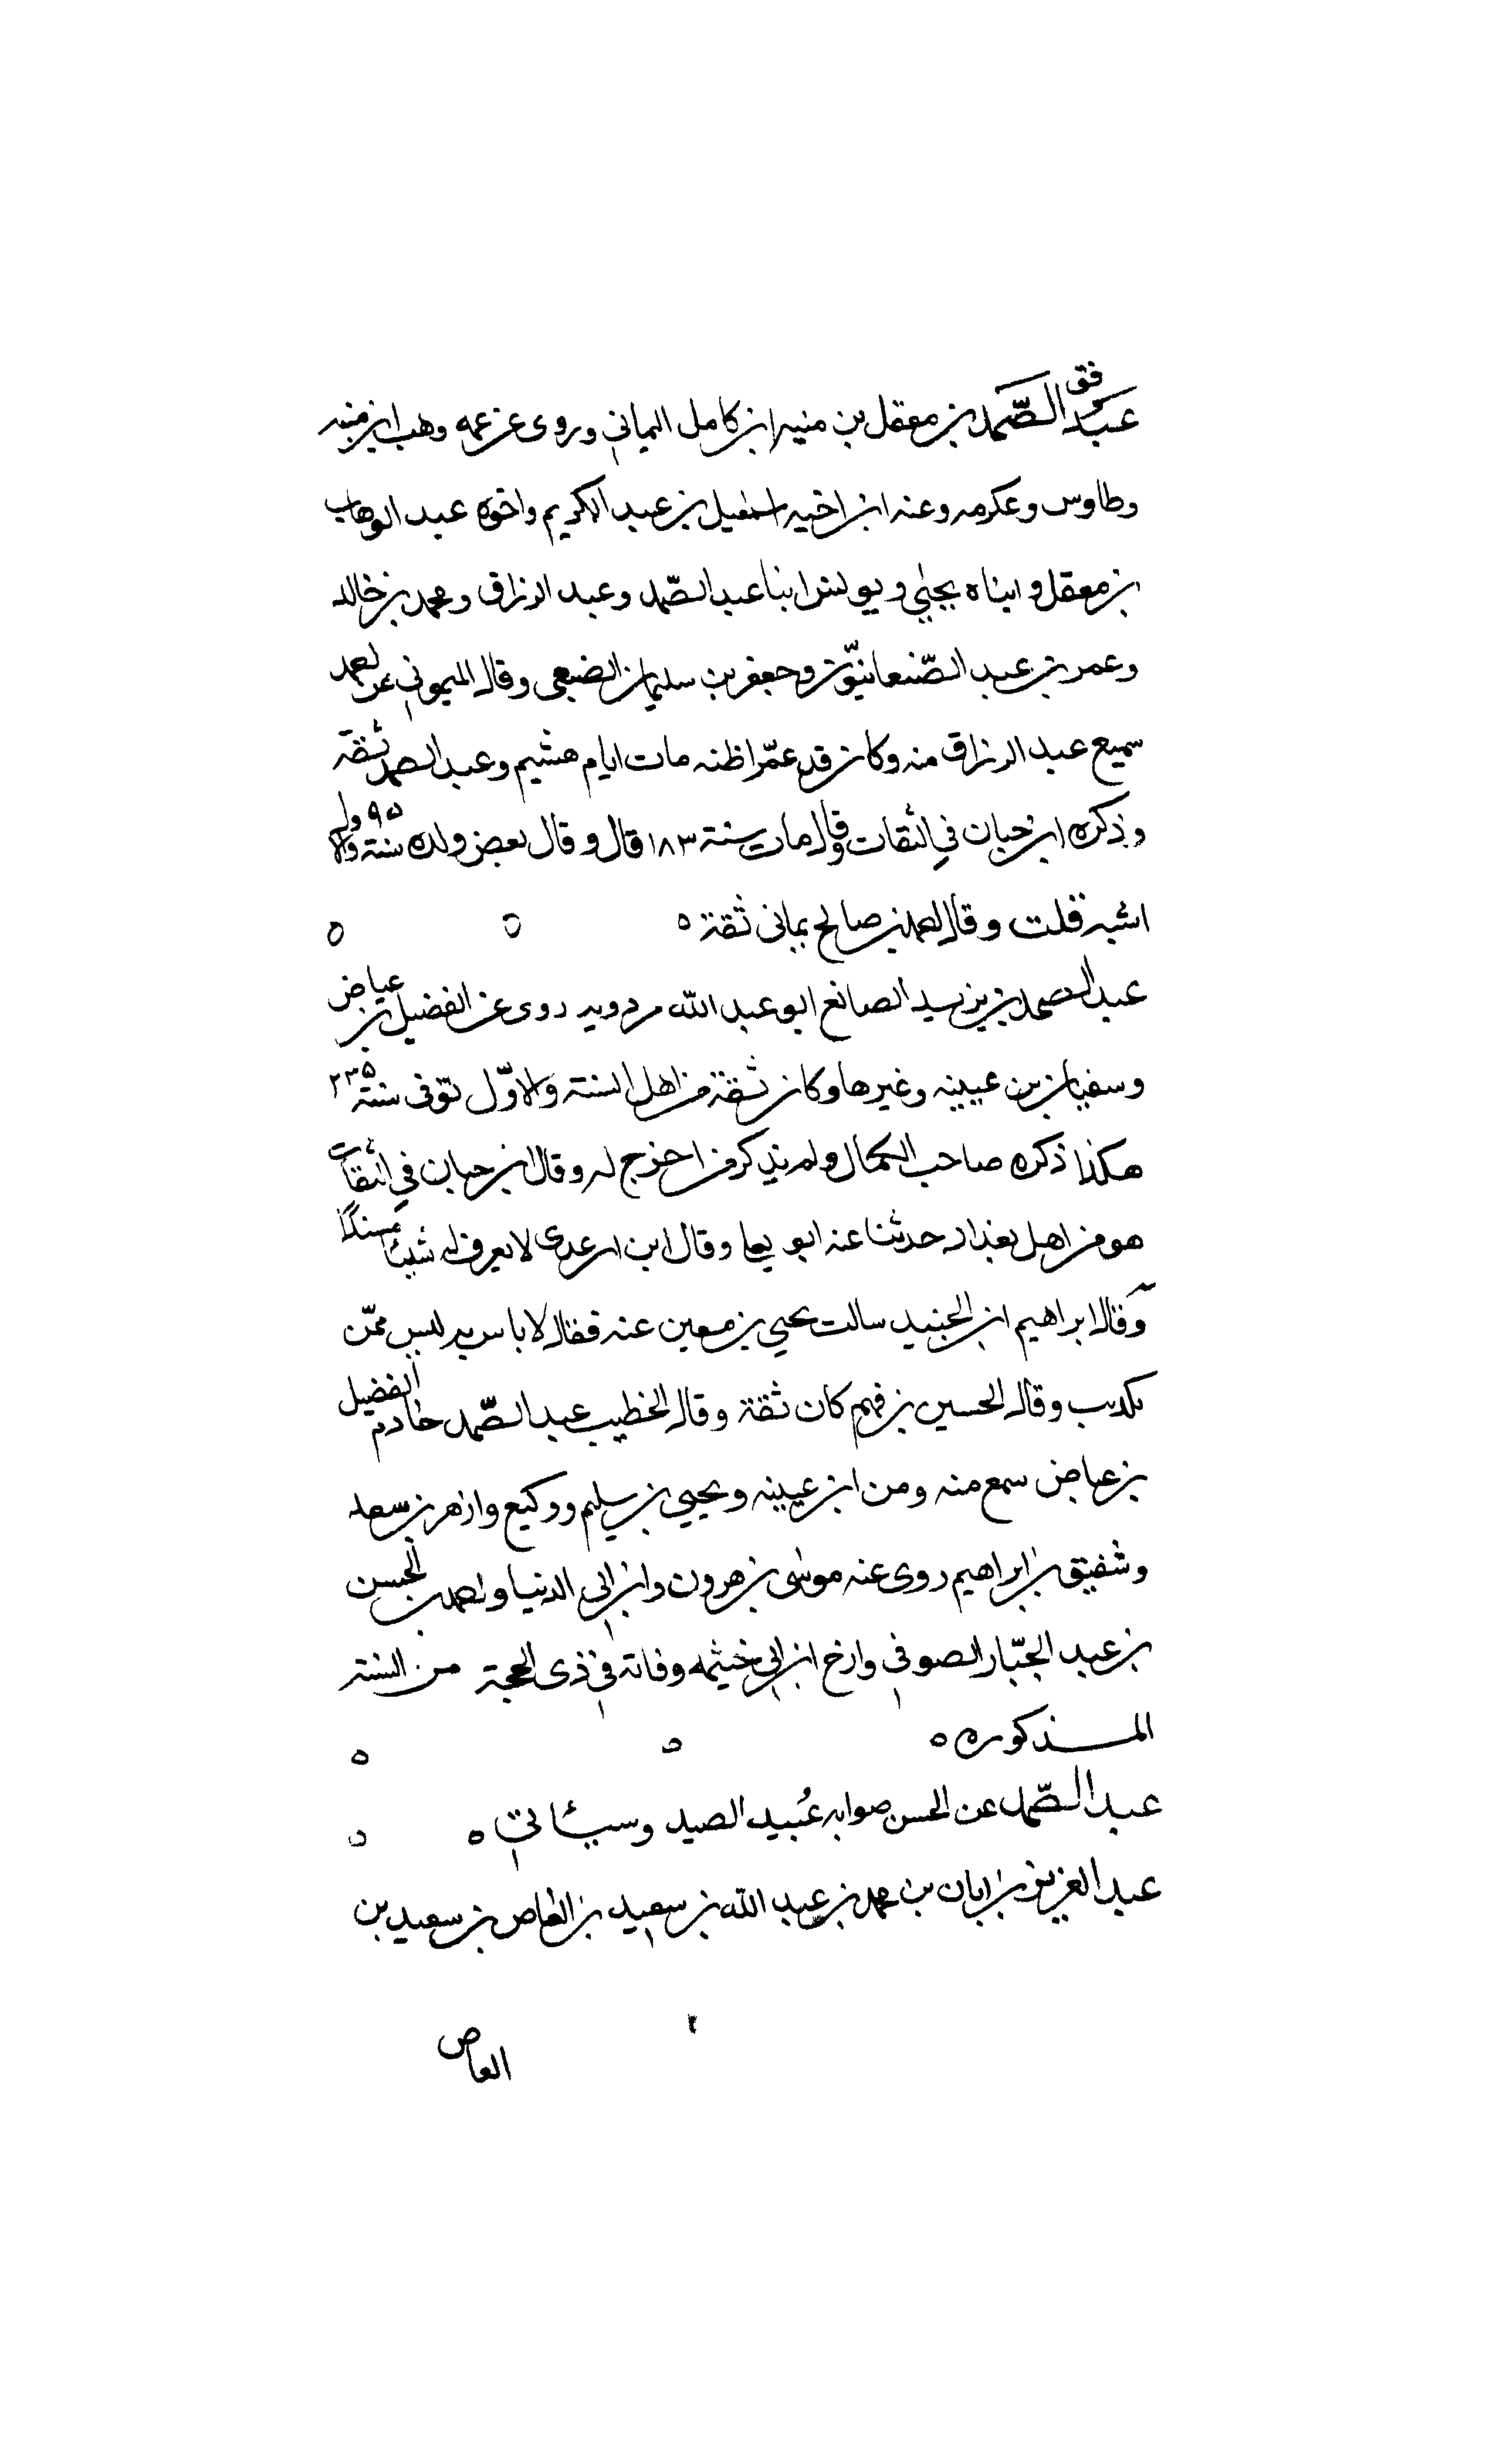 فق
عبد الصّمد بن معقل بن منبه ابن كامل اليماني وروى عن عمه وهب ابن منبه
وطاوس وعكرمه وعنه ابن اخيه اسمعيل بن عبد الكريم واخوه عبد الوهاب
بن معقل وابناه يحيى ويونس ابنا عبد الصّمد وعبد الرزاق ومحمد بن خالد
وعمر بن عبيد الصّنعانيّون وجعفر بن سليمان الضبعى وقال الميموني عن احمد
سميع عبد الرزاق منه وكان قد عمّر اظنه مات ايام هشيم وعبد الصمد ثقة
وذكره ابن حبان في الثقات وقال مات سنة ١٨٣ قال وقال بعض ولده سنة ٩٥ والاول
اشبه قلت وقال احمد بن صالح يمانى ثقة ٥
عبد الصمد بن يزيد الصائغ ابو عبد الله مردويه روى عن الفضيل بن عياض
وسفيان بن عيينه وغيرها وكان ثقة من اهل السنة والاوّل توّفى سنة ٢٣٥
هكذا ذكره صاحب الكمال ولم يذكر من اخرج له وقال ابن حبان في الثقات
هو من اهل بغداد حدثنا عنه ابو يعلى وقال ابن عدى لا يعرف له شيئا مسندًا
وقال ابراهيم ابن الجنيد سالت يحيى بن معين عنه فقال لا باس به ليس ممّن
يكذب وقال الحسين بن فهم كان ثقة وقال الخطيب عبد الصّمد خادم الفضيل
بن عياض سمع منه ومن ابن عيينه ويحيى بن سليم ووكيع وازهر بن سعد
وشقيق بن ابراهيم روى عنه موسى بن هرون وابن ابى الدنيا واحمد بن الحسن
بن عبد الجبّار الصوفي وارخ ابن ابى خيثمه وفاته في ذى الحجة من السنة
المذكوره ٥
عبد الصّمد عن الحسن صوابه عُبيد الصيد وسيأتي ٥
عبد العزيز بن ابان بن محمد بن عبد الله بن سعيد بن العاص بن سعيد بن
العاص